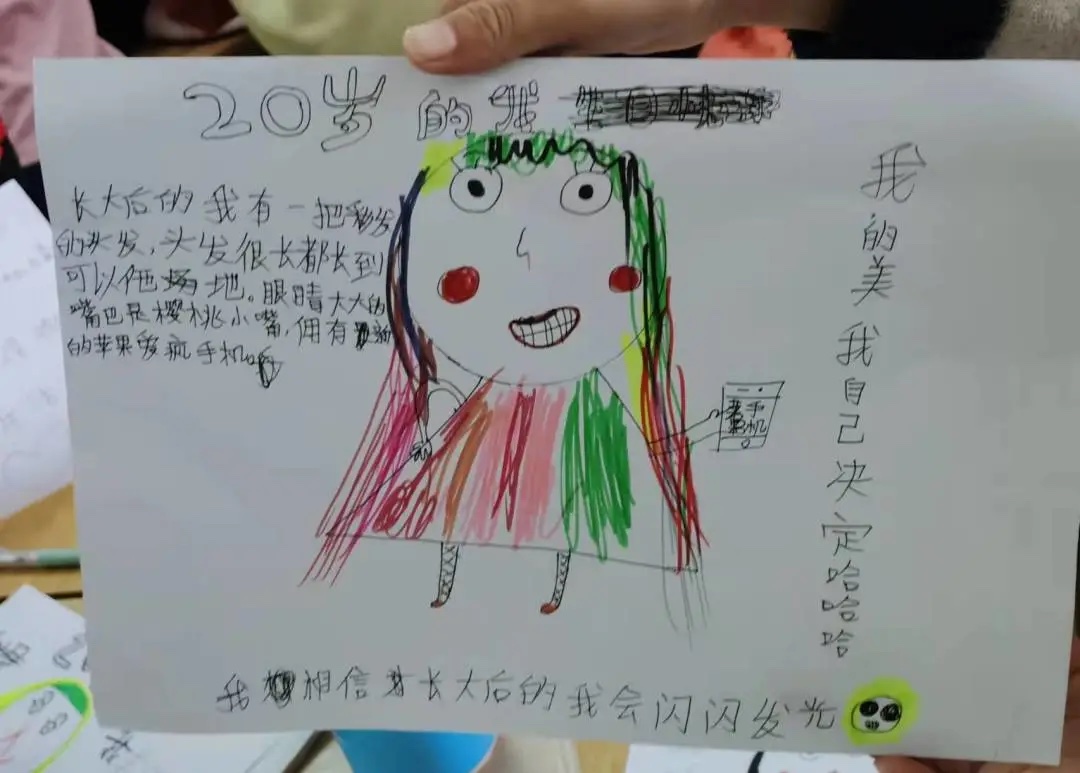 20岁的我
长大后的我有一把彩发
的头发，头发很长都长到
可以拖 地。眼睛大大的
嘴巴是樱桃小嘴，佣有 新
的苹果爱疯手机
手机
我的美我自己决定哈哈哈
我 相信 长大后的我会闪闪发光